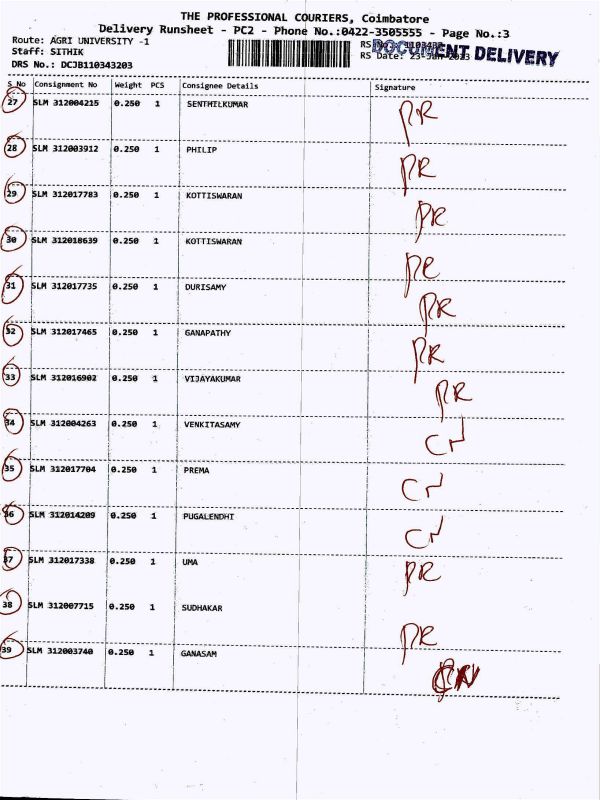 THE PROFESSIONAL COURIERS, Coimbatore
Delivery Runsheet - PC2 - Phone No.:0422-3505555 - Page No.:3
Route: AGRI UNIVERSITY -1
Staff: SITHIK
DOCUMENT DELIVERY
RS Date: 23-Jun-2023
DRS No.: DCJB110343203
S No Consignment No Weight PCS Consignee Details Signature
27 SLM 312004215 0.250 1 SENTHILKUMAR PR
28 SLM 312003912 0.250 1 PHILIP PR
29 SLM 312017783 0.250 1 KOTTISWARAN PR
30 SLM 312018639 0.250 1 KOTTISWARAN PR
31 SLM 312017735 0.250 1 DURISAMY PR
32 SLM 312017465 0.250 1 GANAPATHY PR
33 SLM 312016902 0.250 1 VIJAYAKUMAR PR
34 SLM 312004263 0.250 1 VENKITASAMY CN
35 SLM 312017704 0.250 1 PREMA CN
36 SLM 312014209 0.250 1 PUGALENDHI CN
37 SLM 312017338 0.250 1 UMA PR
38 SLM 312007715 0.250 1 SUDHAKAR PR
39 SLM 312003740 0.250 1 GANASAM CN